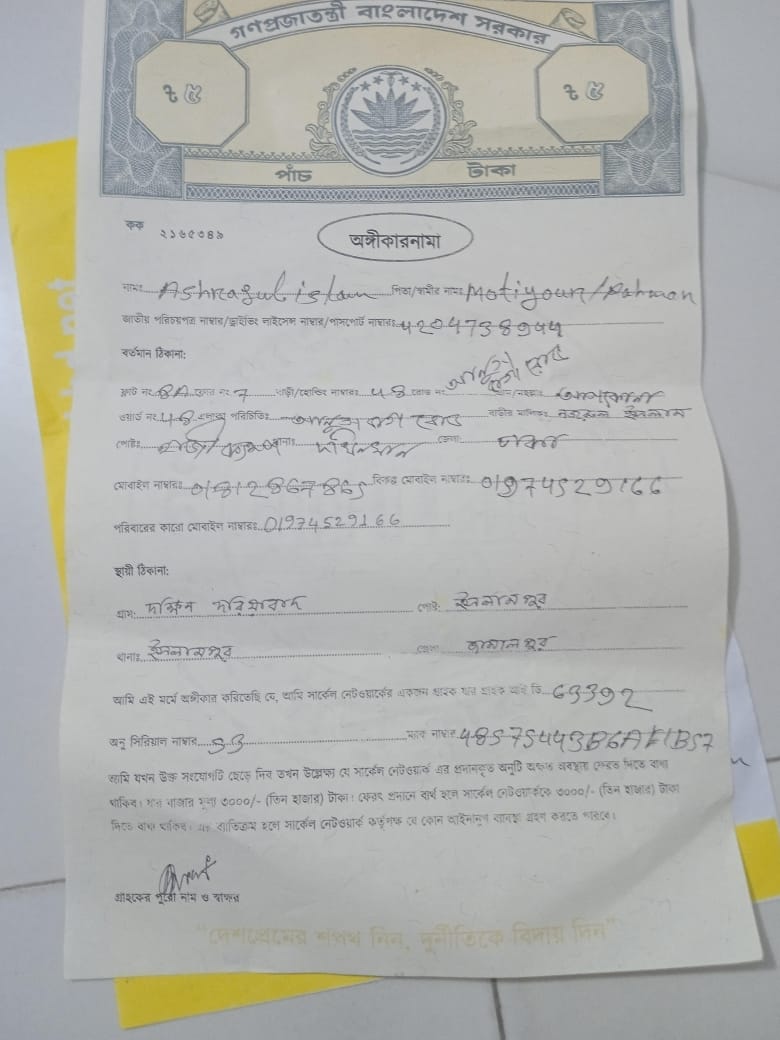 গণপ্রজাতন্ত্রী বাংলাদেশ সরকার
৳ ৫ ৳ ৫
পাঁচ টাকা
কক ২১৬৫৩৪৯
অঙ্গীকারনামা
নামঃ Ashraful islam পিতা/স্বামীর নামঃ Motiyour Rahman
জাতীয় পরিচয়পত্র নাম্বার/ড্রাইভিং লাইসেন্স নাম্বার/পাসপোর্ট নাম্বারঃ
বর্তমান ঠিকানা:
ফ্লাট নং 8A ফ্লোর নং 7 বাড়ী/হোল্ডিং নাম্বারঃ 48 রোড নং
ওয়ার্ড নং 48 এলাকা পরিচিতিঃ বাড়ীর মালিকঃ নজরুল ইসলাম
পোষ্টঃ থানাঃ জেলাঃ ঢাকা
মোবাইল নাম্বারঃ 01812867865 বিকল্প মোবাইল নাম্বারঃ 01974529166
পরিবারের কারো মোবাইল নাম্বারঃ 01974529166
স্থায়ী ঠিকানা:
গ্রাম: দক্ষিন দরিয়াবাদ পোষ্ট: ইসলামপুর
থানাঃ ইসলামপুর জেলা জামালপুর
আমি এই মর্মে অঙ্গীকার করিতেছি যে, আমি সার্কেল নেটওয়ার্কের একজন গ্রাহক যার গ্রাহক আই ডি 63392
অনু সিরিয়াল নাম্বার ম্যাক নাম্বার
আমি যখন উক্ত সংযোগটি ছেড়ে দিব তখন উল্লেখ্য যে সার্কেল নেটওয়ার্ক এর প্রদানকৃত অনুটি অক্ষত অবস্থায় ফেরত দিতে বাধ্য
থাকিব। যার বাজার মূল্য ৩০০০/- (তিন হাজার) টাকা। ফেরৎ প্রদানে ব্যর্থ হলে সার্কেল নেটওয়ার্ককে ৩০০০/- (তিন হাজার) টাকা
দিতে বাধ্য থাকিব। এর ব্যতিক্রম হলে সার্কেল নেটওয়ার্ক কর্তৃপক্ষ যে কোন আইনানুগ ব্যবস্থা গ্রহণ করতে পারবে।
গ্রাহকের পুরো নাম ও স্বাক্ষর
"দেশপ্রেমের শপথ নিন, দুর্নীতিকে বিদায় দিন"